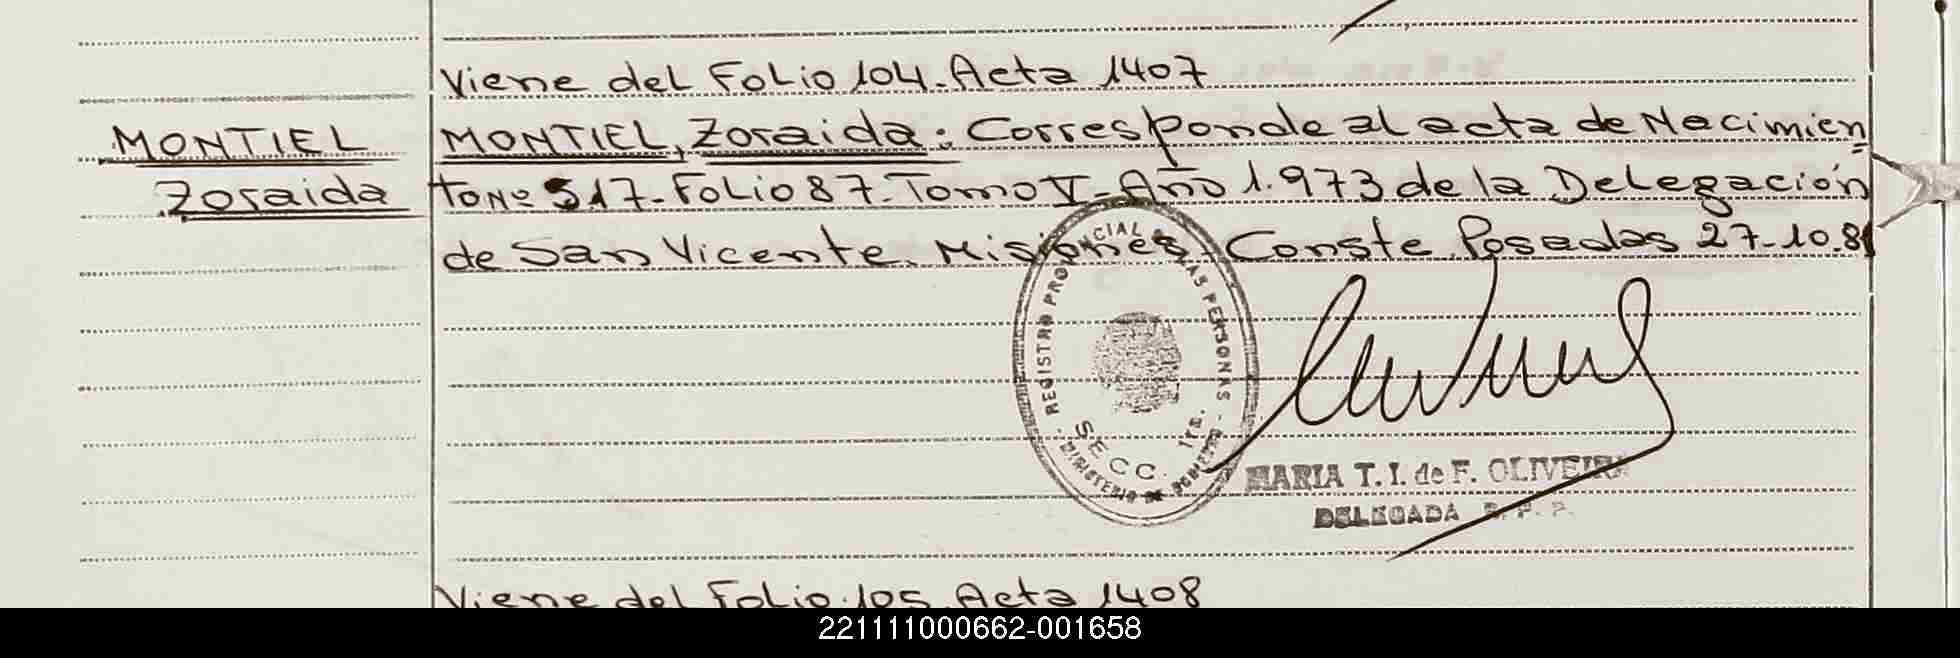 Viene del Folio 104. Acta 1407
MONTIEL
Zoraida
MONTIEL, Zoraida: Corresponde al acta de Nacimien=
to Nº 517. Folio 87. Tomo V. Año 1.973 de la Delegación
de San Vicente. Misiones. Conste. Posadas 27-10.81
REGISTRO PROVINCIAL DE LAS PERSONAS
SECC. 1ra.
MINISTERIO DE GOBIERNO
MARIA T. I. de F. OLIVEIRA
DELEGADA R. P. P.
Viene del Folio 105. Acta 1408
221111000662-001658